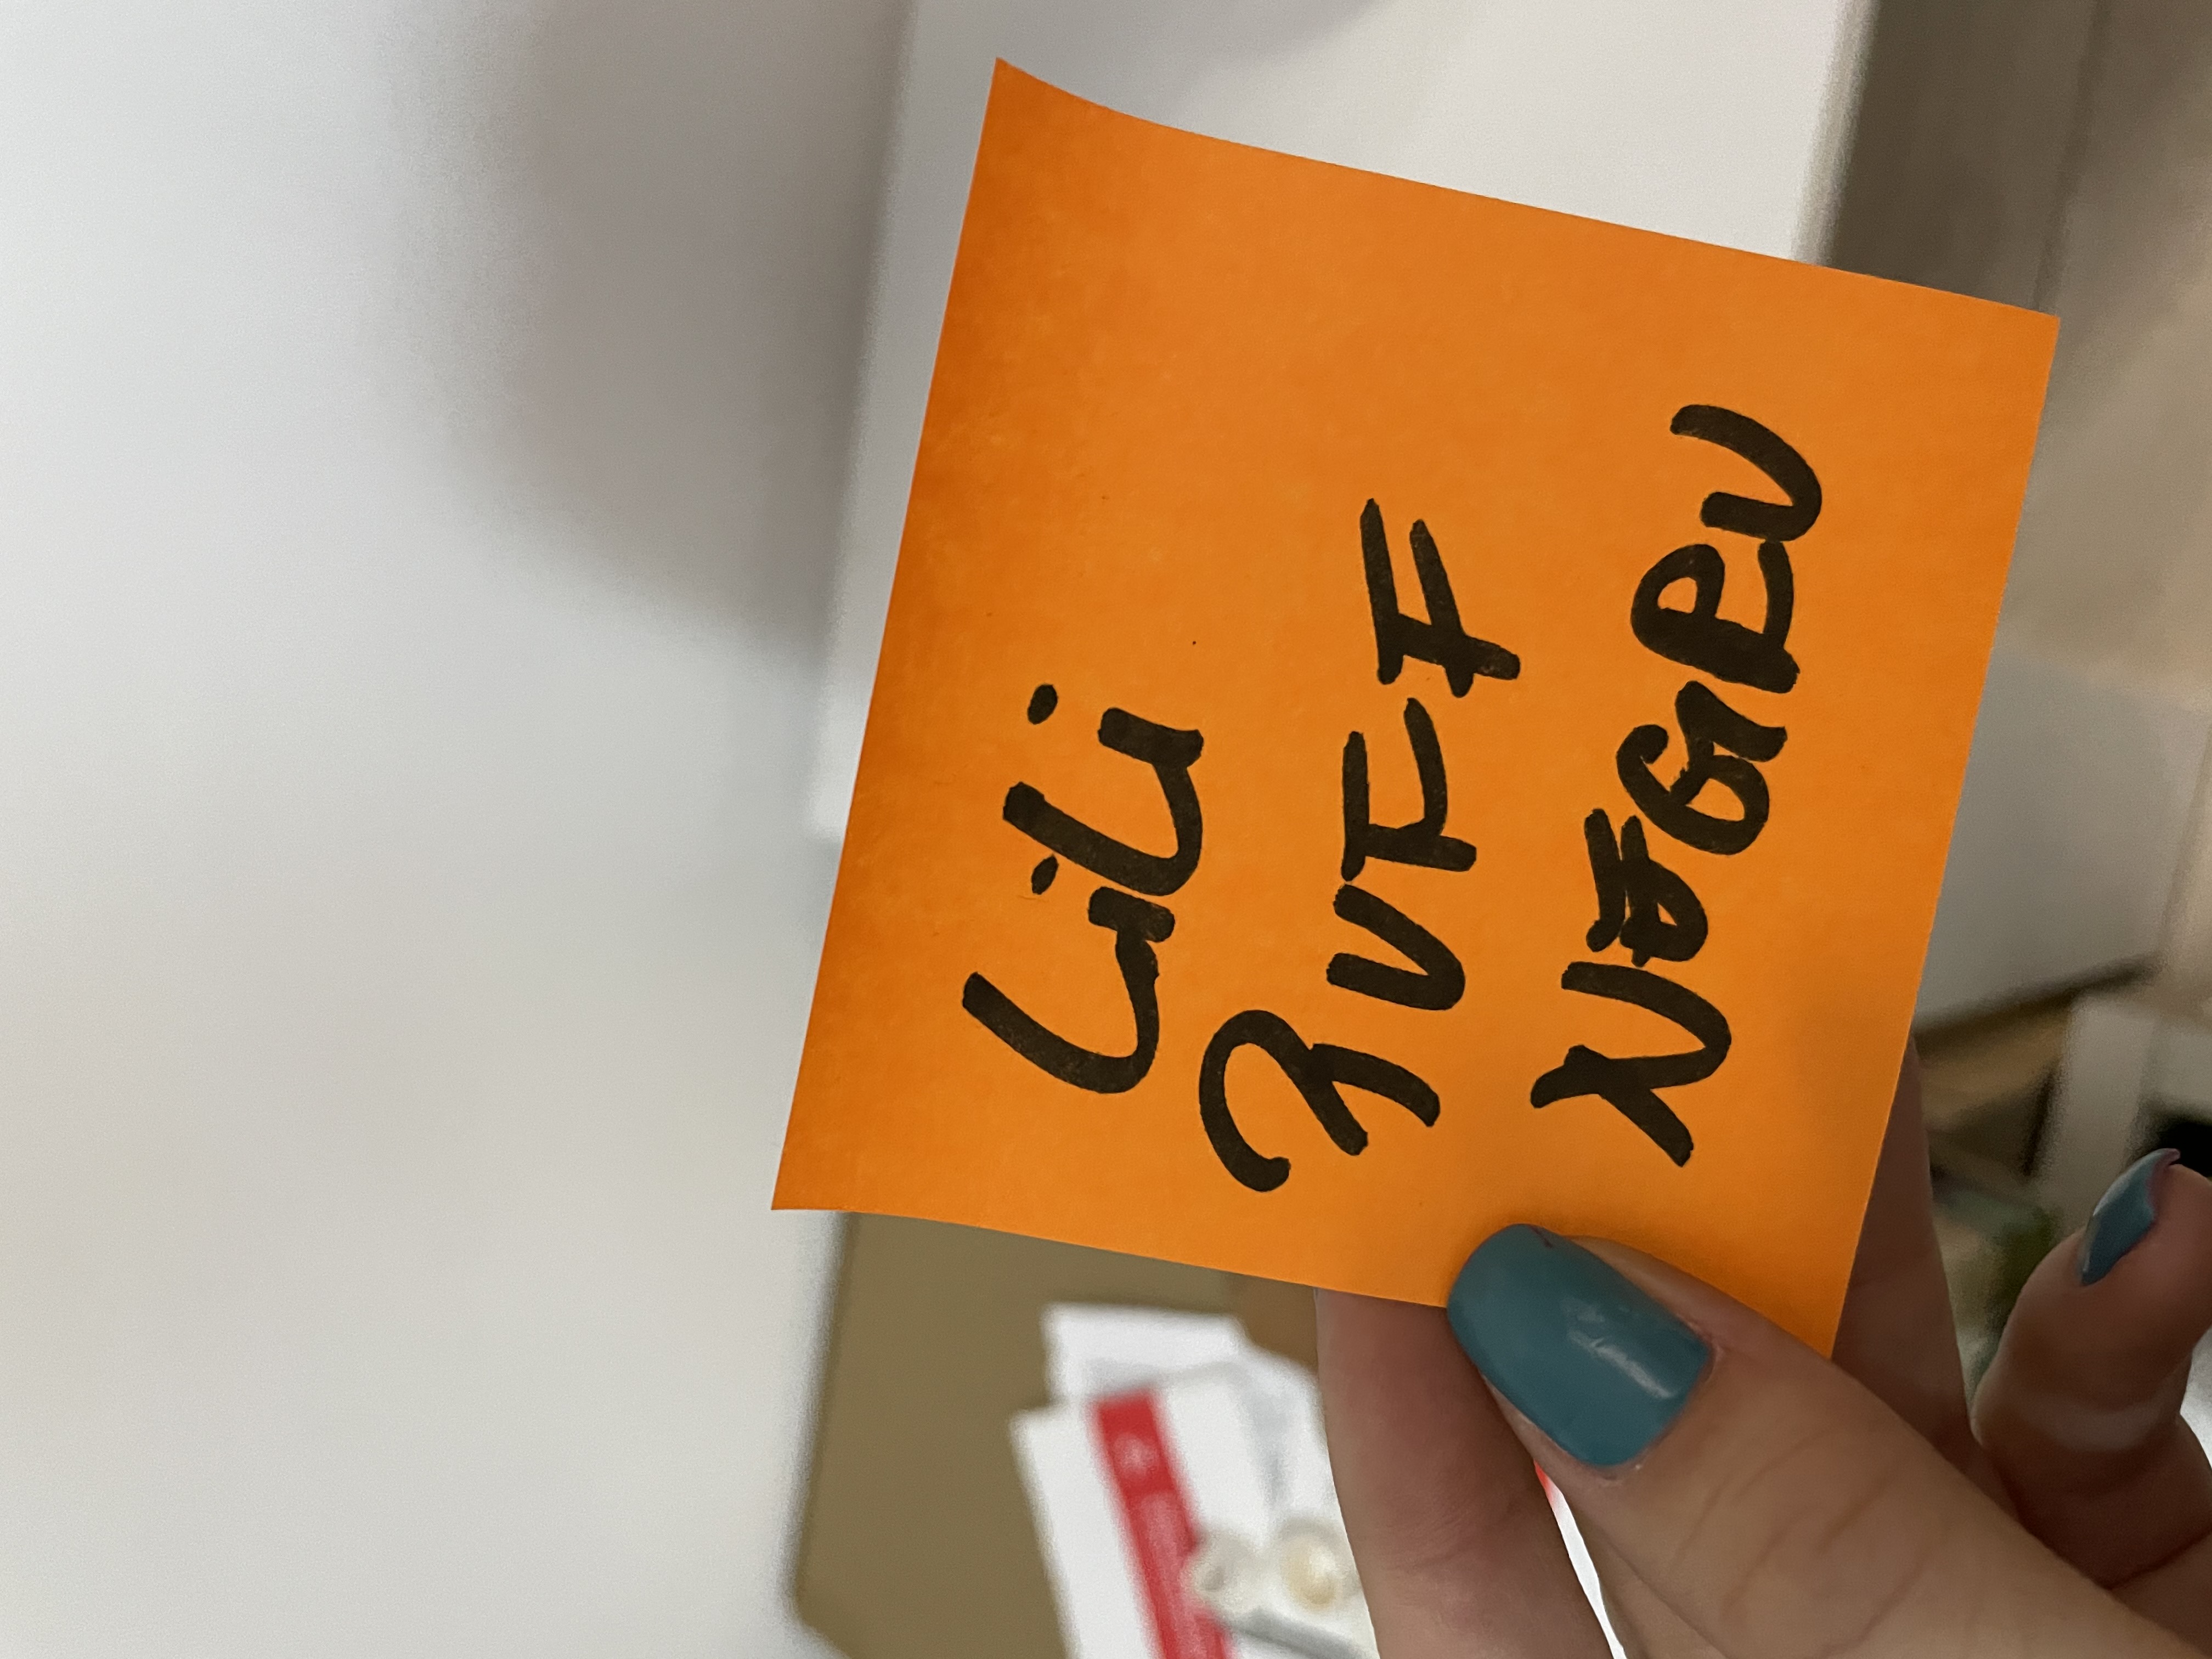 Lili
PUFF
NEGRU